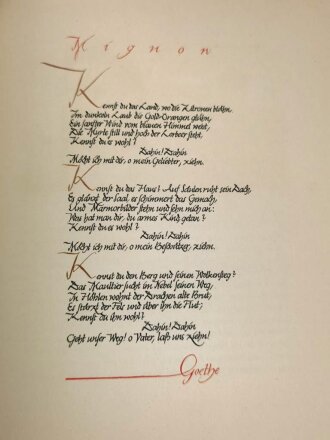 Mignon
Kennst du das Land, wo die Zitronen blühn,
Im dunkeln Laub die Gold-Orangen glühn,
Ein sanfter Wind vom blauen Himmel weht,
Die Myrte still und hoch der Lorbeer steht,
Kennst du es wohl?
Dahin! Dahin
Möcht ich mit dir, o mein Geliebter, ziehn.
Kennst du das Haus? Auf Säulen ruht sein Dach,
Es glänzt der Saal, es schimmert das Gemach,
Und Marmorbilder stehn und sehn mich an:
Was hat man dir, du armes Kind, getan?
Kennst du es wohl?
Dahin! Dahin
Möcht ich mit dir, o mein Beschützer, ziehn.
Kennst du den Berg und seinen Wolkensteg?
Das Maultier sucht im Nebel seinen Weg,
In Höhlen wohnt der Drachen alte Brut;
Es stürzt der Fels und über ihn die Flut;
Kennst du ihn wohl?
Dahin! Dahin
Geht unser Weg! o Vater, laß uns ziehn!
Goethe